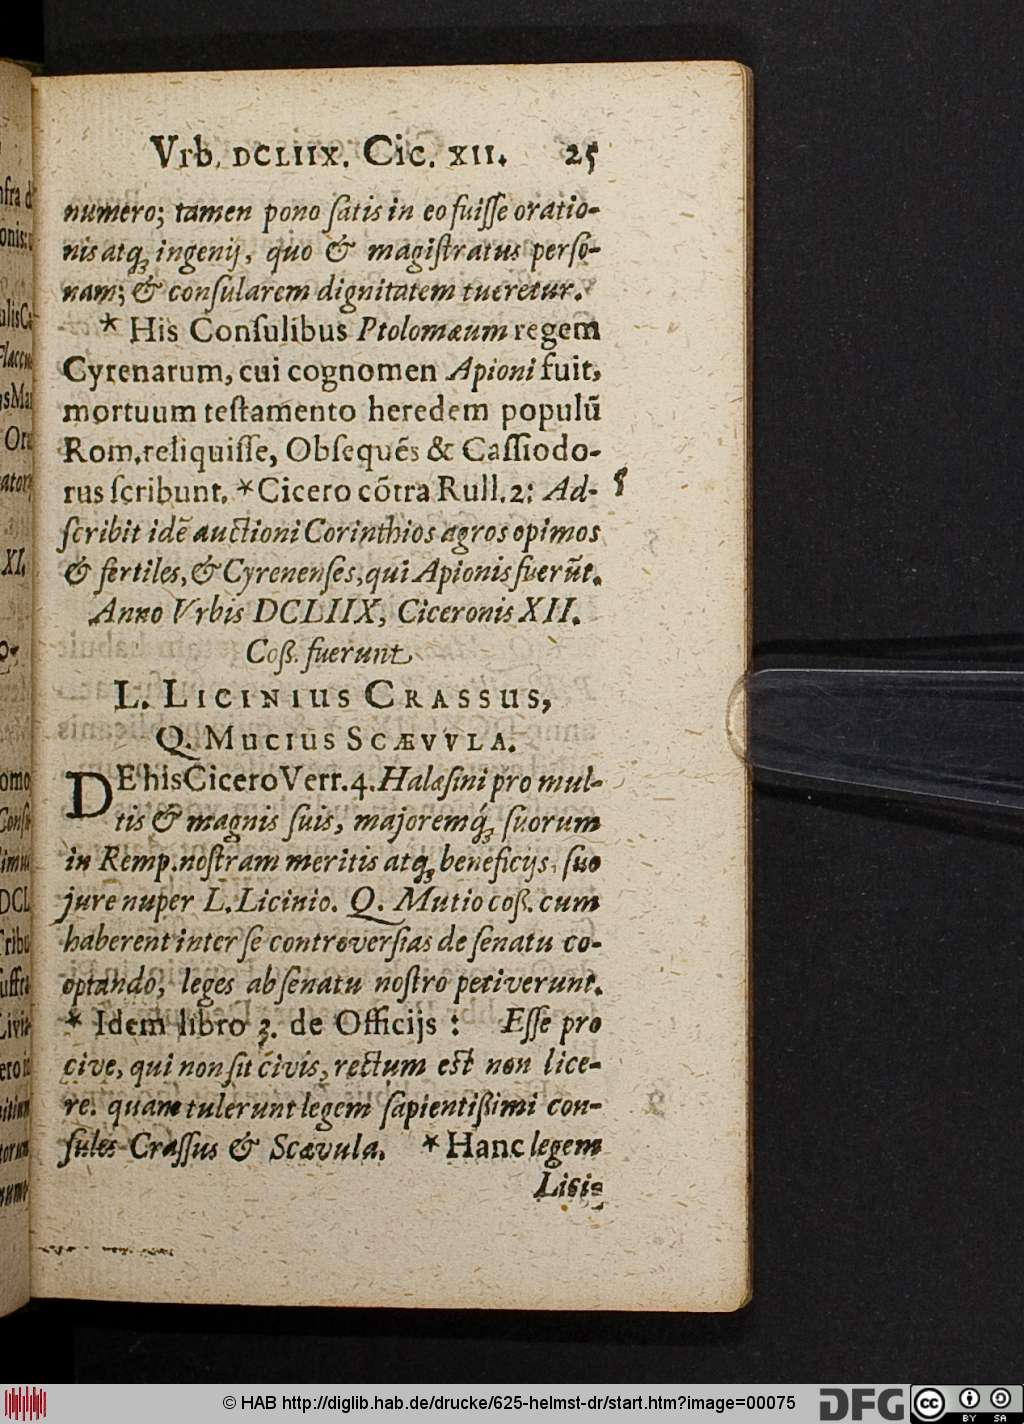 Vrb. DCLIIX. Cic. XII. 25
numero; tamen pono ſatis in eo fuiſſe oratio-
nis atq; ingenij, quo & magiſtratus perſo-
nam; & conſularem dignitatem tueretur.
* His Conſulibus Ptolomæum regem
Cyrenarum, cui cognomen Apioni fuit,
mortuum teſtamento heredem populũ
Rom. reliquiſſe, Obſequẽs & Caſſiodo-
rus ſcribunt. * Cicero cõtra Rull. 2: Ad-
ſcribit idẽ auctioni Corinthios agros opimos
& fertiles, & Cyrenenſes, qui Apionis fuerũt.
Anno Vrbis DCLIIX, Ciceronis XII.
Coß. fuerunt
L. LICINIUS CRASSUS,
Q. MUCIUS SCÆVVLA.
DE his Cicero Verr. 4. Halæſini pro mul-
tis & magnis ſuis, majoremq́; ſuorum
in Remp. noſtram meritis atq; beneficijs, ſuo
jure nuper L. Licinio. Q. Mutio coß. cum
haberent inter ſe controverſias de ſenatu co-
optando, leges ab ſenatu noſtro petiverunt.
* Idem libro 3. de Officijs: Eſſe pro
cive, qui non ſit civis, rectum est non lice-
re. quam tulerunt legem ſapientißimi con-
ſules Craſſus & Scævula. * Hanc legem
Liciz
© HAB http://diglib.hab.de/drucke/625-helmst-dr/start.htm?image=00075
DFG
cc BY SA